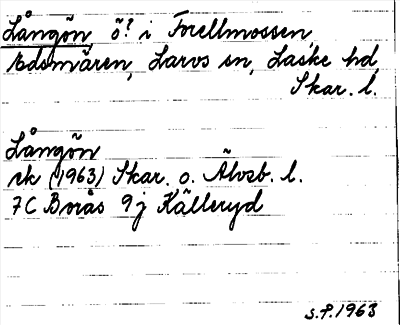 Långön ö? i Forellmossen,
Edsmären, Larvs sn, Laske hd,
Skar. l.
Långön
rk (1963) Skar. o. Älvsb. l.
7C Borås 9j Källeryd
S.P. 1963